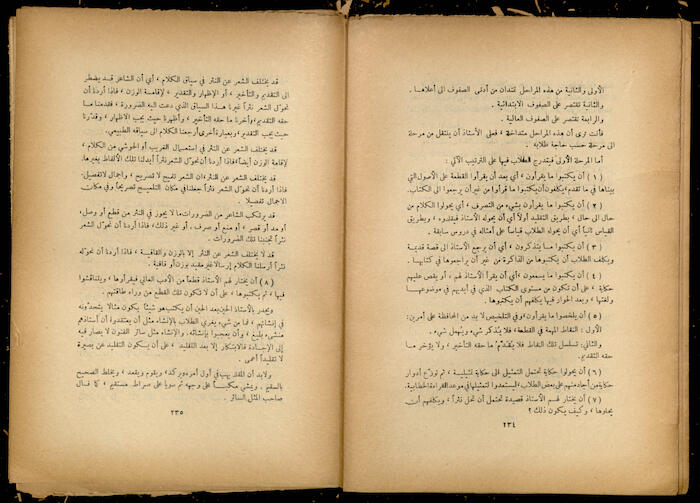 الأولى والثانية من هذه المراحل تمتدان من أدنى الصفوف الى أعلاها .
والثالثة تقتصر على الصفوف الابتدائية .
والرابعة تقتصر على الصفوف العالية .
فأنت ترى أن هذه المراحل متداخلة ، فعلى الأستاذ أن ينتقل من مرحلة
الى مرحلة حسب حاجة طلابه .
أما المرحلة الأولى فيتدرج الطلاب فيها على الترتيب الآتي :
( ١ ) أن يكتبوا ما يقرأون ، أي بعد أن يقرأوا القطعة على الأصول التي
بيناها في ما تقدم ، يكلفون أن يكتبوا ما قرأوا من غير أن يرجعوا الى الكتاب .
( ٢ ) أن يكتبوا ما يقرأون بشيء من التصرف ، أي يحولوا الكلام من
حال الى حال ، بطريق التقليد أولاً أي أن يحوله الأستاذ فيقلدوه ، وبطريق
القياس ثانياً أي أن يحوله الطلاب قياساً على أمثاله في دروس سابقة .
( ٣ ) أن يكتبوا ما يتذكرون ، أي أن يرجع الأستاذ الى قصة قديمة
ويكلف الطلاب أن يكتبوها من الذاكرة من غير أن يراجعوها في كتابها .
( ٤ ) أن يكتبوا ما يسمعون ، أي أن يقرأ الأستاذ لهم ، أو يقص عليهم
حكاية ، على أن تكون من مستوى الكتاب الذي في أيديهم في موضوعها
ولغتها ، وبعد الحوار فيها يكلفهم أن يكتبوها .
( ٥ ) أن يلخصوا ما يقرأون ، وفي التلخيص لا بد من المحافظة على أمرين :
الأول : النقاط المهمة في القطعة ، فلا يُذكر شيء ويُهمل شيء .
والثاني : تسلسل تلك النقاط فلا يُقدَّم ما حقه التأخير ، ولا يؤخر ما
حقه التقديم .
( ٦ ) أن يحولوا حكاية تحتمل التمثيل الى حكاية تمثيلية ، ثم توزع أدوار
حكاية من أجادتهم على بعض الطلاب ، ليستعدوا لتمثيلها في موعد القراءة الخطابية .
( ٧ ) أن يختار لهم الأستاذ قصيدة تحتمل أن تحل نثراً ، ويكلفهم أن
يحلوها ، وكيف يكون ذلك ؟
٢٣٤
قد يختلف الشعر عن النثر في سياق الكلام ، أي أن الشاعر قد يضطر
الى التقديم والتأخير ، أو الإظهار والتقدير ، لإقامة الوزن ، فاذا أردنا أن
نحوّل الشعر نثراً غيرنا هذا السياق الذي دعت اليه الضرورة ، فقدمنا ما
حقه التقديم ، وأخرنا ما حقه التأخير ، وأظهرنا حيث يجب الاظهار ، وقدّرنا
حيث يجب التقدير ، وبعبارة أخرى أرجعنا الكلام الى سياقه الطبيعي .
قد يختلف الشعر عن النثر في استعمال الغريب أو الحوشي من الكلام ،
لإقامة الوزن أيضاً ، فاذا أردنا أن نحوّل الشعر نثراً أبدلنا تلك الألفاظ بغيرها .
قد يختلف الشعر عن النثر ، ان الشعر تلميح لا تصريح ، واجمال لا تفصيل .
فاذا أردنا أن نحوّل الشعر نثراً جعلنا في مكان التلميح تصريحاً وفي مكان
الاجمال تفصيلا .
قد يرتكب الشاعر من الضرورات ما لا يجوز في النثر من قطع أو وصل ،
أو مد أو قصر ، أو منع أو صرف ، أو غير ذلك ، فاذا أردنا أن نحوّل الشعر
نثراً تجنبنا تلك الضرورات .
قد لا يختلف الشعر عن النثر إلا بالوزن والقافية ، فاذا أردنا أن نحوّله
نثراً أرسلنا الكلام إرسالاً غير مقيد بوزن أو قافية .
( ٨ ) أن يختار لهم الأستاذ قطعاً من الأدب العالي فيقرأوها ، ويتناقشوا
فيها ، ثم يكتبوها ، على أن لا تكون تلك القطع من وراء طاقتهم .
ويجدر بالأستاذ الحين بعد الحين أن يكتب هو شيئاً يكون مثالا يتحدونه
في إنشائهم ، فما من شيء يغري الطلاب بالإنشاء مثل أن يعتقدوا أن أستاذهم
منشيء بليغ ، وأن يعجبوا بإنشائه . والإنشاء مثل سائر الفنون لا يصار فيه
إلى الإجادة فالابتكار إلا بعد التقليد ، على أن يكون التقليد عن بصيرة
لا تقليداً أعمى .
ولا بد أن المقلد يهب في أول أمره ويركد ، ويقوم ويقعد ، ويخلط الصحيح
بالسقيم ، ويمشي مكباً على وجهه ثم سويا على صراط مستقيم ، كما قال
صاحب المثل السائر .
٢٣٥